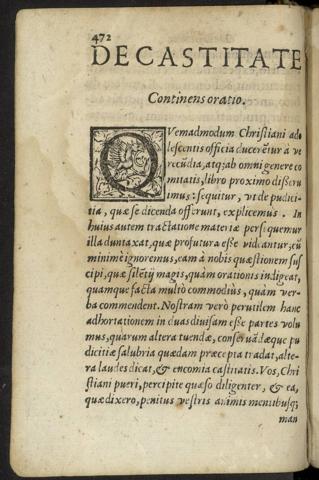 472
DE CASTITATE
Continens oratio.
QVemadmodum Christiani ado
lescentis officia ducerẽtur à ve
recũdia, atq; ab omni genere co
mitatis, libro proximo disseru
imus: sequitur, vt de pudici-
tia, quæ se dicenda offerunt, explicemus. In
huius autem tractatione materiæ persequemur
illa duntaxat, quæ profutura esse videantur; cũ
minimè ignoremus, eam à nobis quæstionem sus
cipi, quæ silẽtij magis, quàm orationis indigeat,
quamque facta multò commodiùs, quàm ver-
ba commendent. Nostram verò perutilem hanc
adhortationem in duas diuisam esse partes volu
mus, quarum altera tuendæ, conseruãdæque pu
dicitiæ salubria quædam præcepta tradat, alte-
ra laudes dicat, & encomia castitatis. Vos, Chri
stiani pueri, percipite quæso diligenter, & ea,
quæ dixero, penitus vestris animis mentibusq;
man